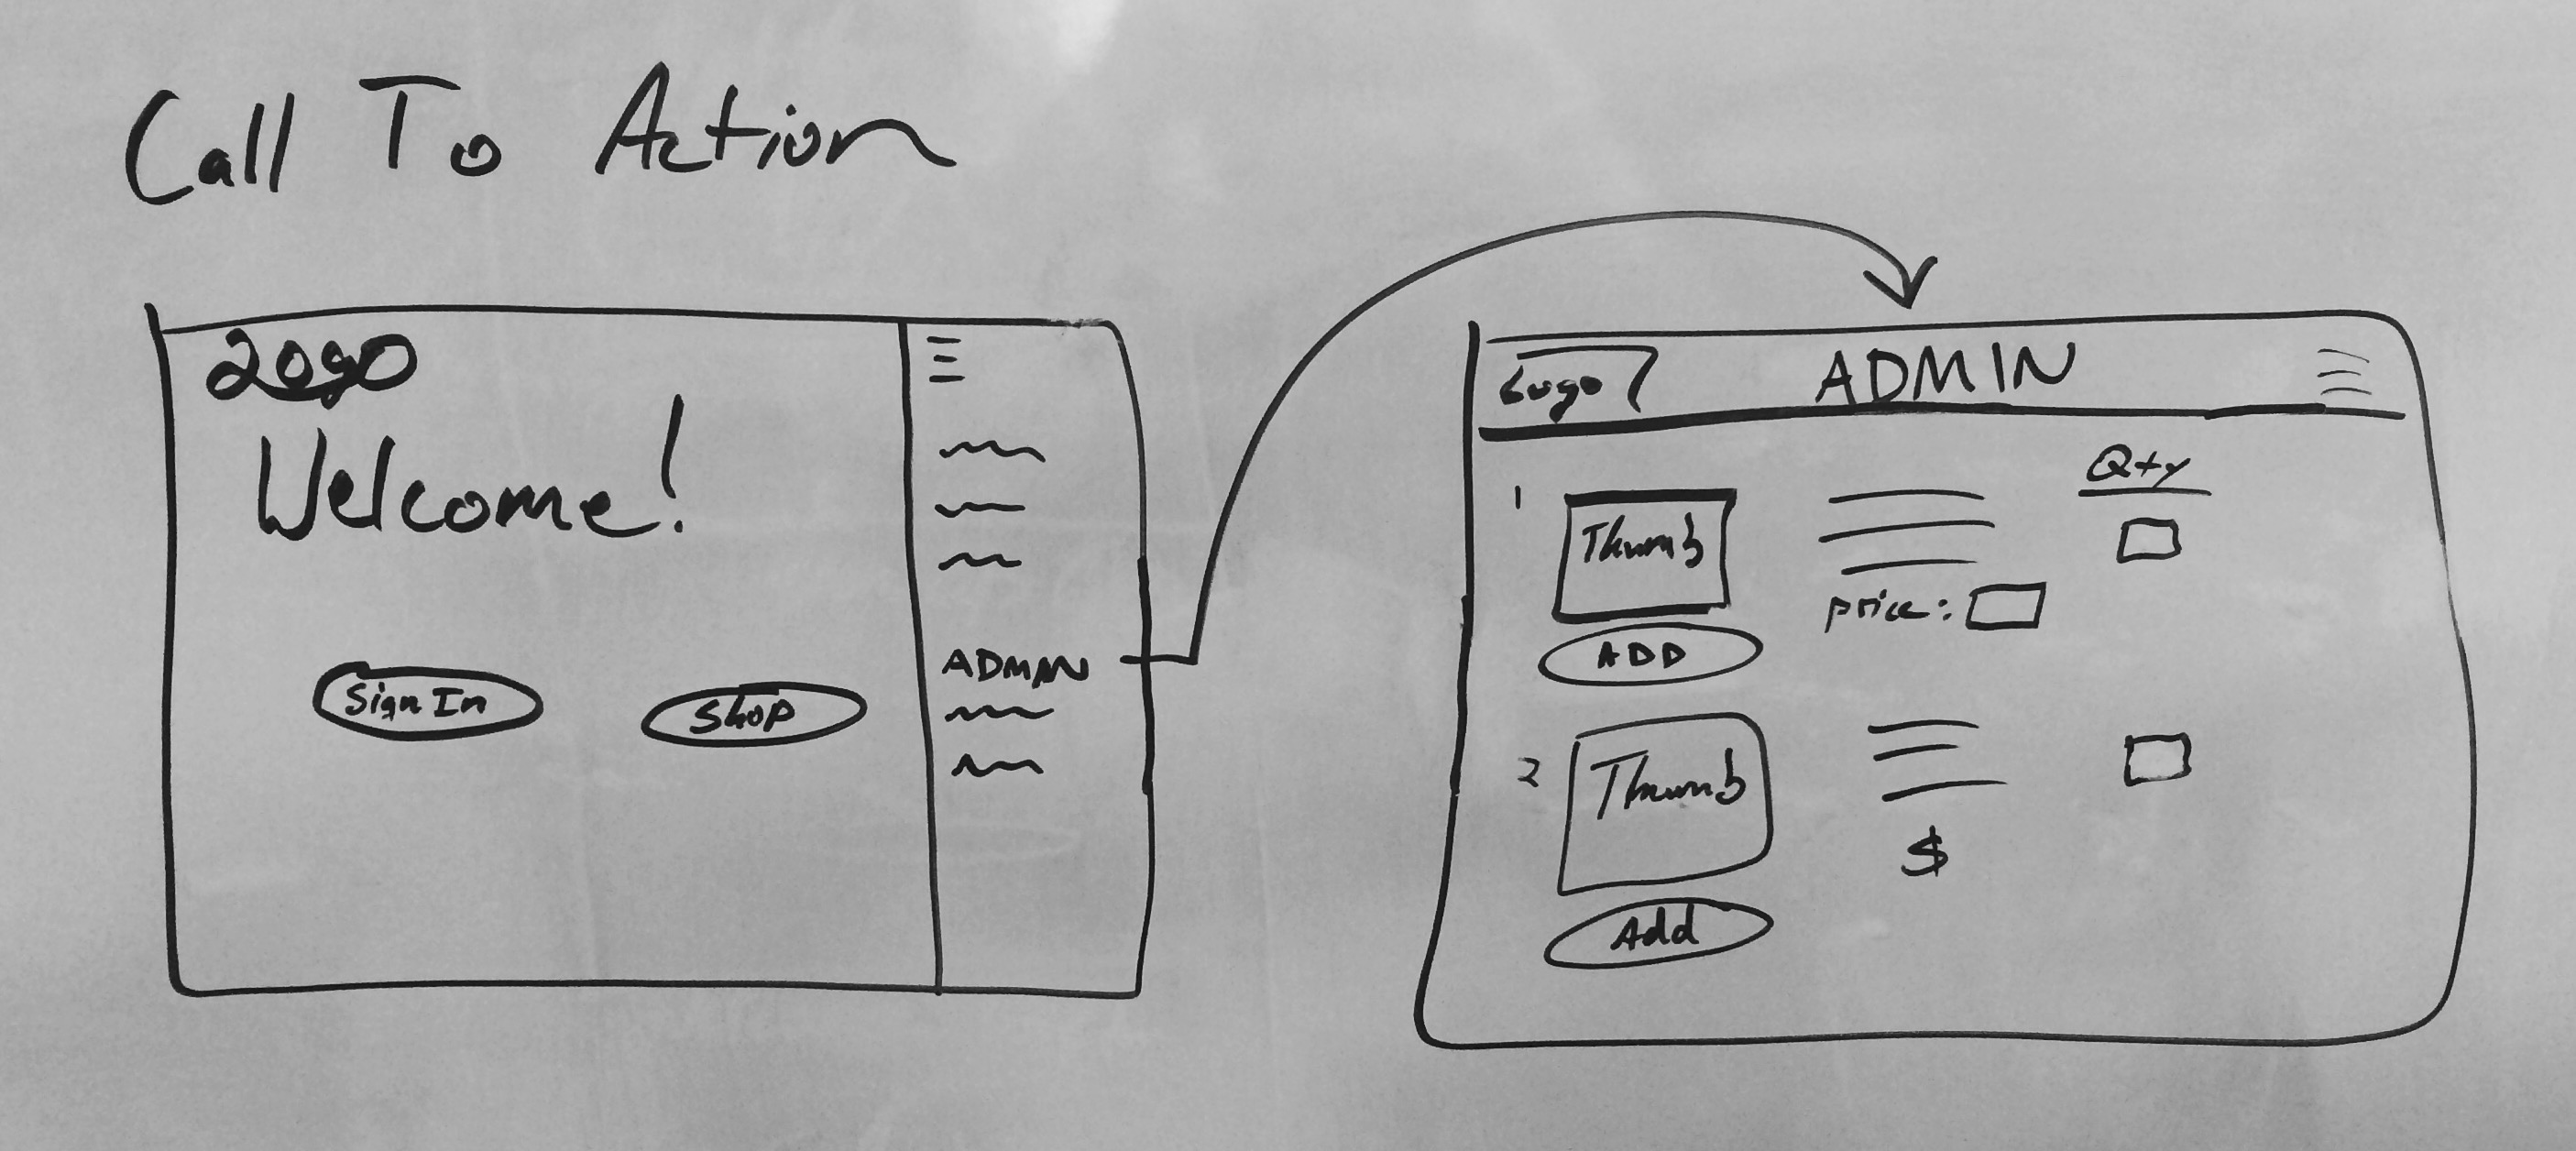 Call To Action
Logo
Welcome!
Sign In
Shop
ADMIN
Logo
ADMIN
1
Thumb
Qty
price:
ADD
2
Thumb
$
Add